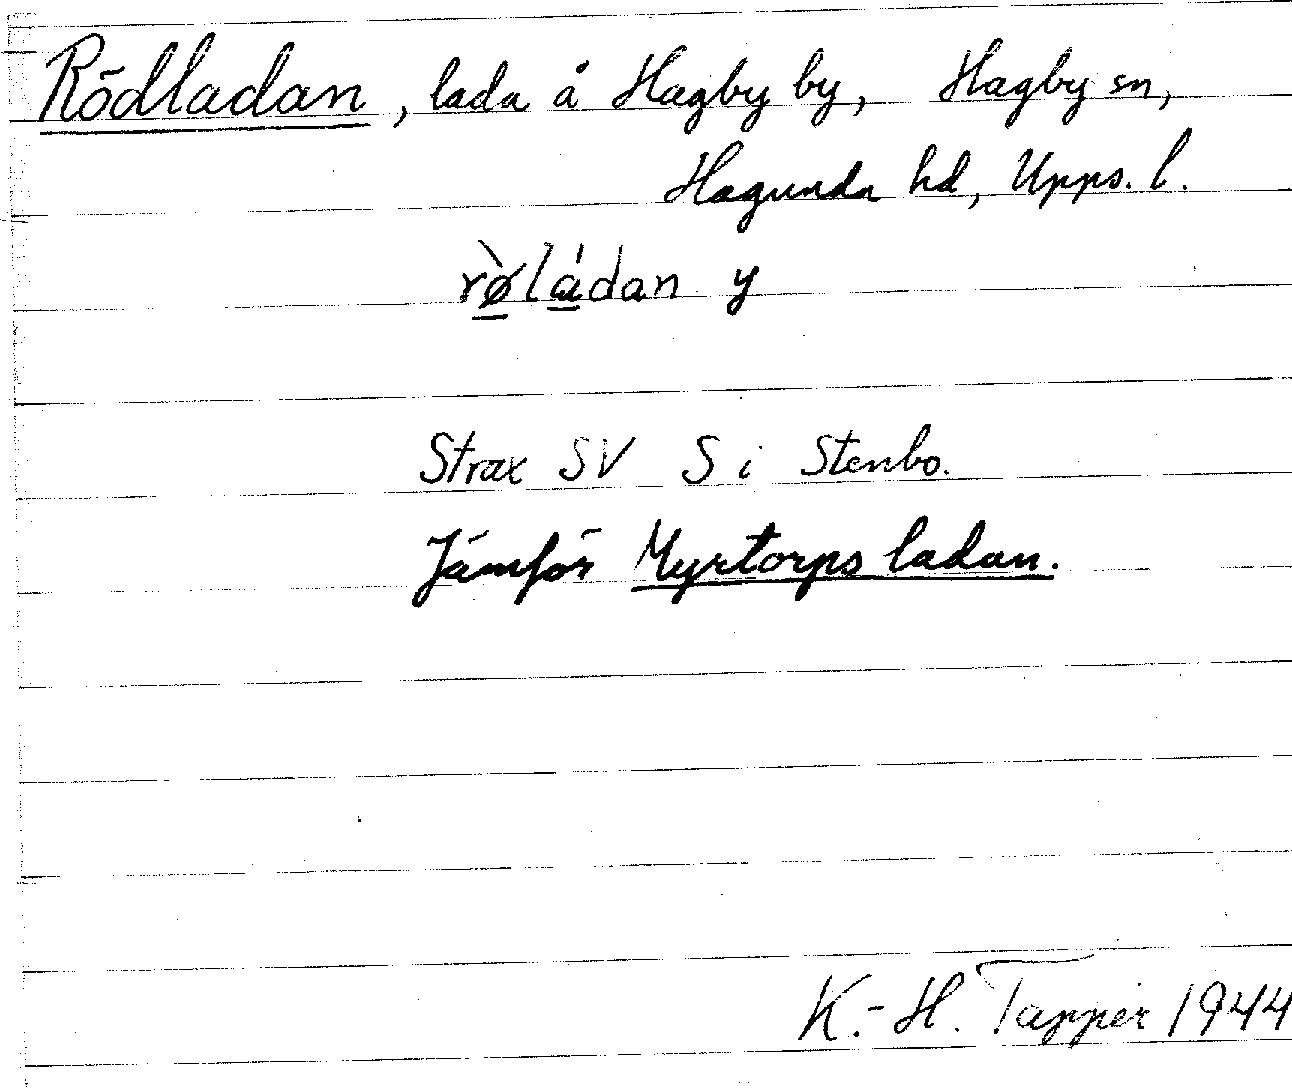 Rödladan, lada å Hagby by, Hagby sn,
Hagunda hd, Upps. l.
rø̀ládan y
Strax SV S i Stenbo.
Jämför Myrtorpsladan.
K.-H. Tapper 1944